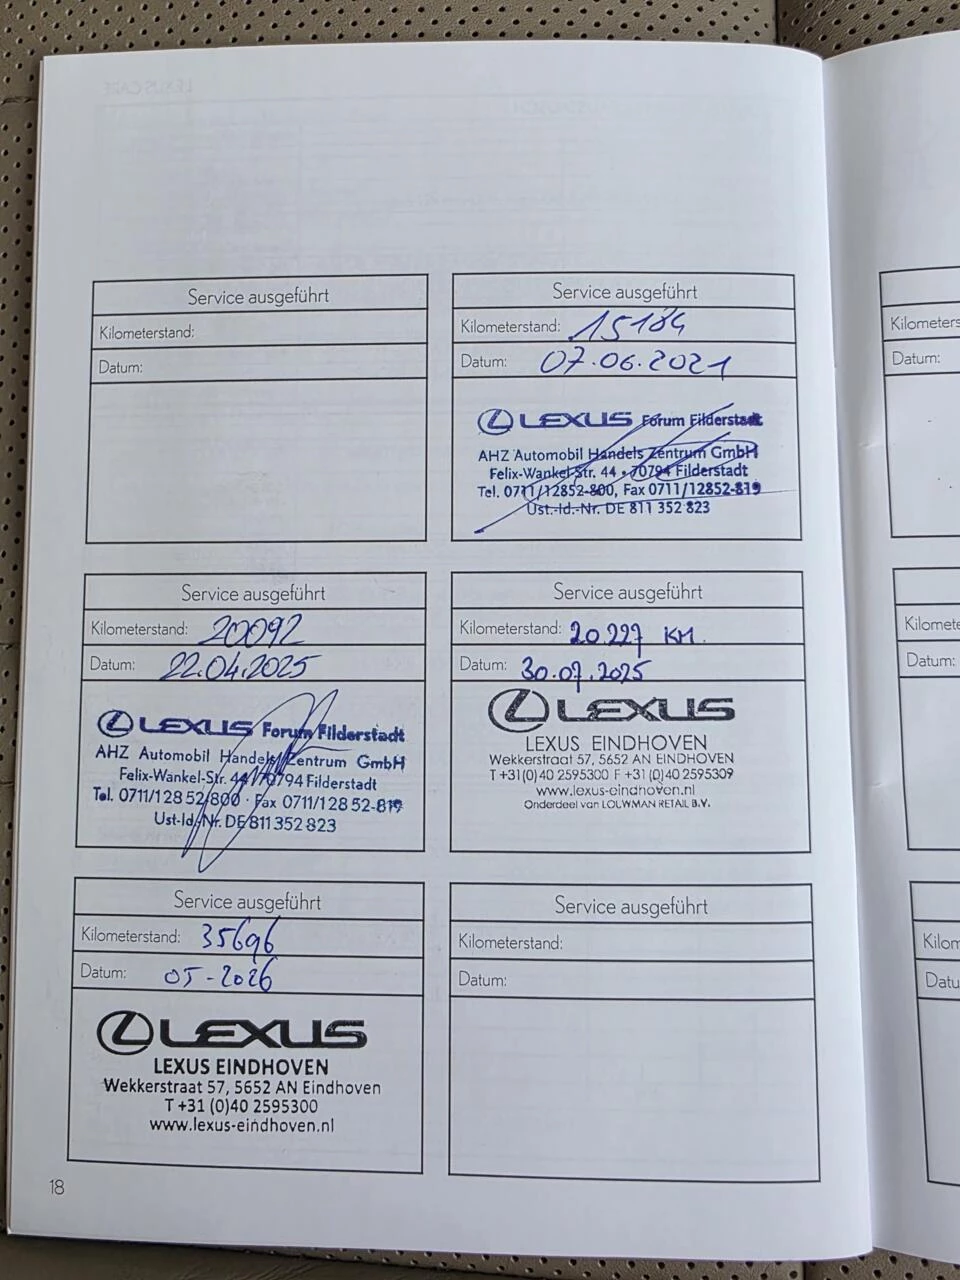 LEXUS CARE
Service ausgeführt
Kilometerstand:
Datum:
Service ausgeführt
Kilometerstand: 15184
Datum: 07.06.2021
LEXUS Forum Filderstadt
AHZ Automobil Handels Zentrum GmbH
Felix-Wankel-Str. 44 • 70794 Filderstadt
Tel. 0711/12852-800, Fax 0711/12852-819
Ust.-Id.-Nr. DE 811 352 823
Service ausgeführt
Kilometerstand: 20092
Datum: 22.04.2025
LEXUS Forum Filderstadt
AHZ Automobil Handels Zentrum GmbH
Felix-Wankel-Str. 44 / 70794 Filderstadt
Tel. 0711/128 52-800 · Fax 0711/128 52-819
Ust-Id.-Nr. DE 811 352 823
Service ausgeführt
Kilometerstand: 20.227 KM.
Datum: 30.07.2025
LEXUS
LEXUS EINDHOVEN
Wekkerstraat 57, 5652 AN EINDHOVEN
T +31(0)40 2595300 F +31(0)40 2595309
www.lexus-eindhoven.nl
Onderdeel van LOUWMAN RETAIL B.V.
Service ausgeführt
Kilometerstand: 35696
Datum: 05-2026
LEXUS
LEXUS EINDHOVEN
Wekkerstraat 57, 5652 AN Eindhoven
T +31 (0)40 2595300
www.lexus-eindhoven.nl
Service ausgeführt
Kilometerstand:
Datum:
18
Kilometers
Datum:
Kilomete
Datum:
Kilom
Datu